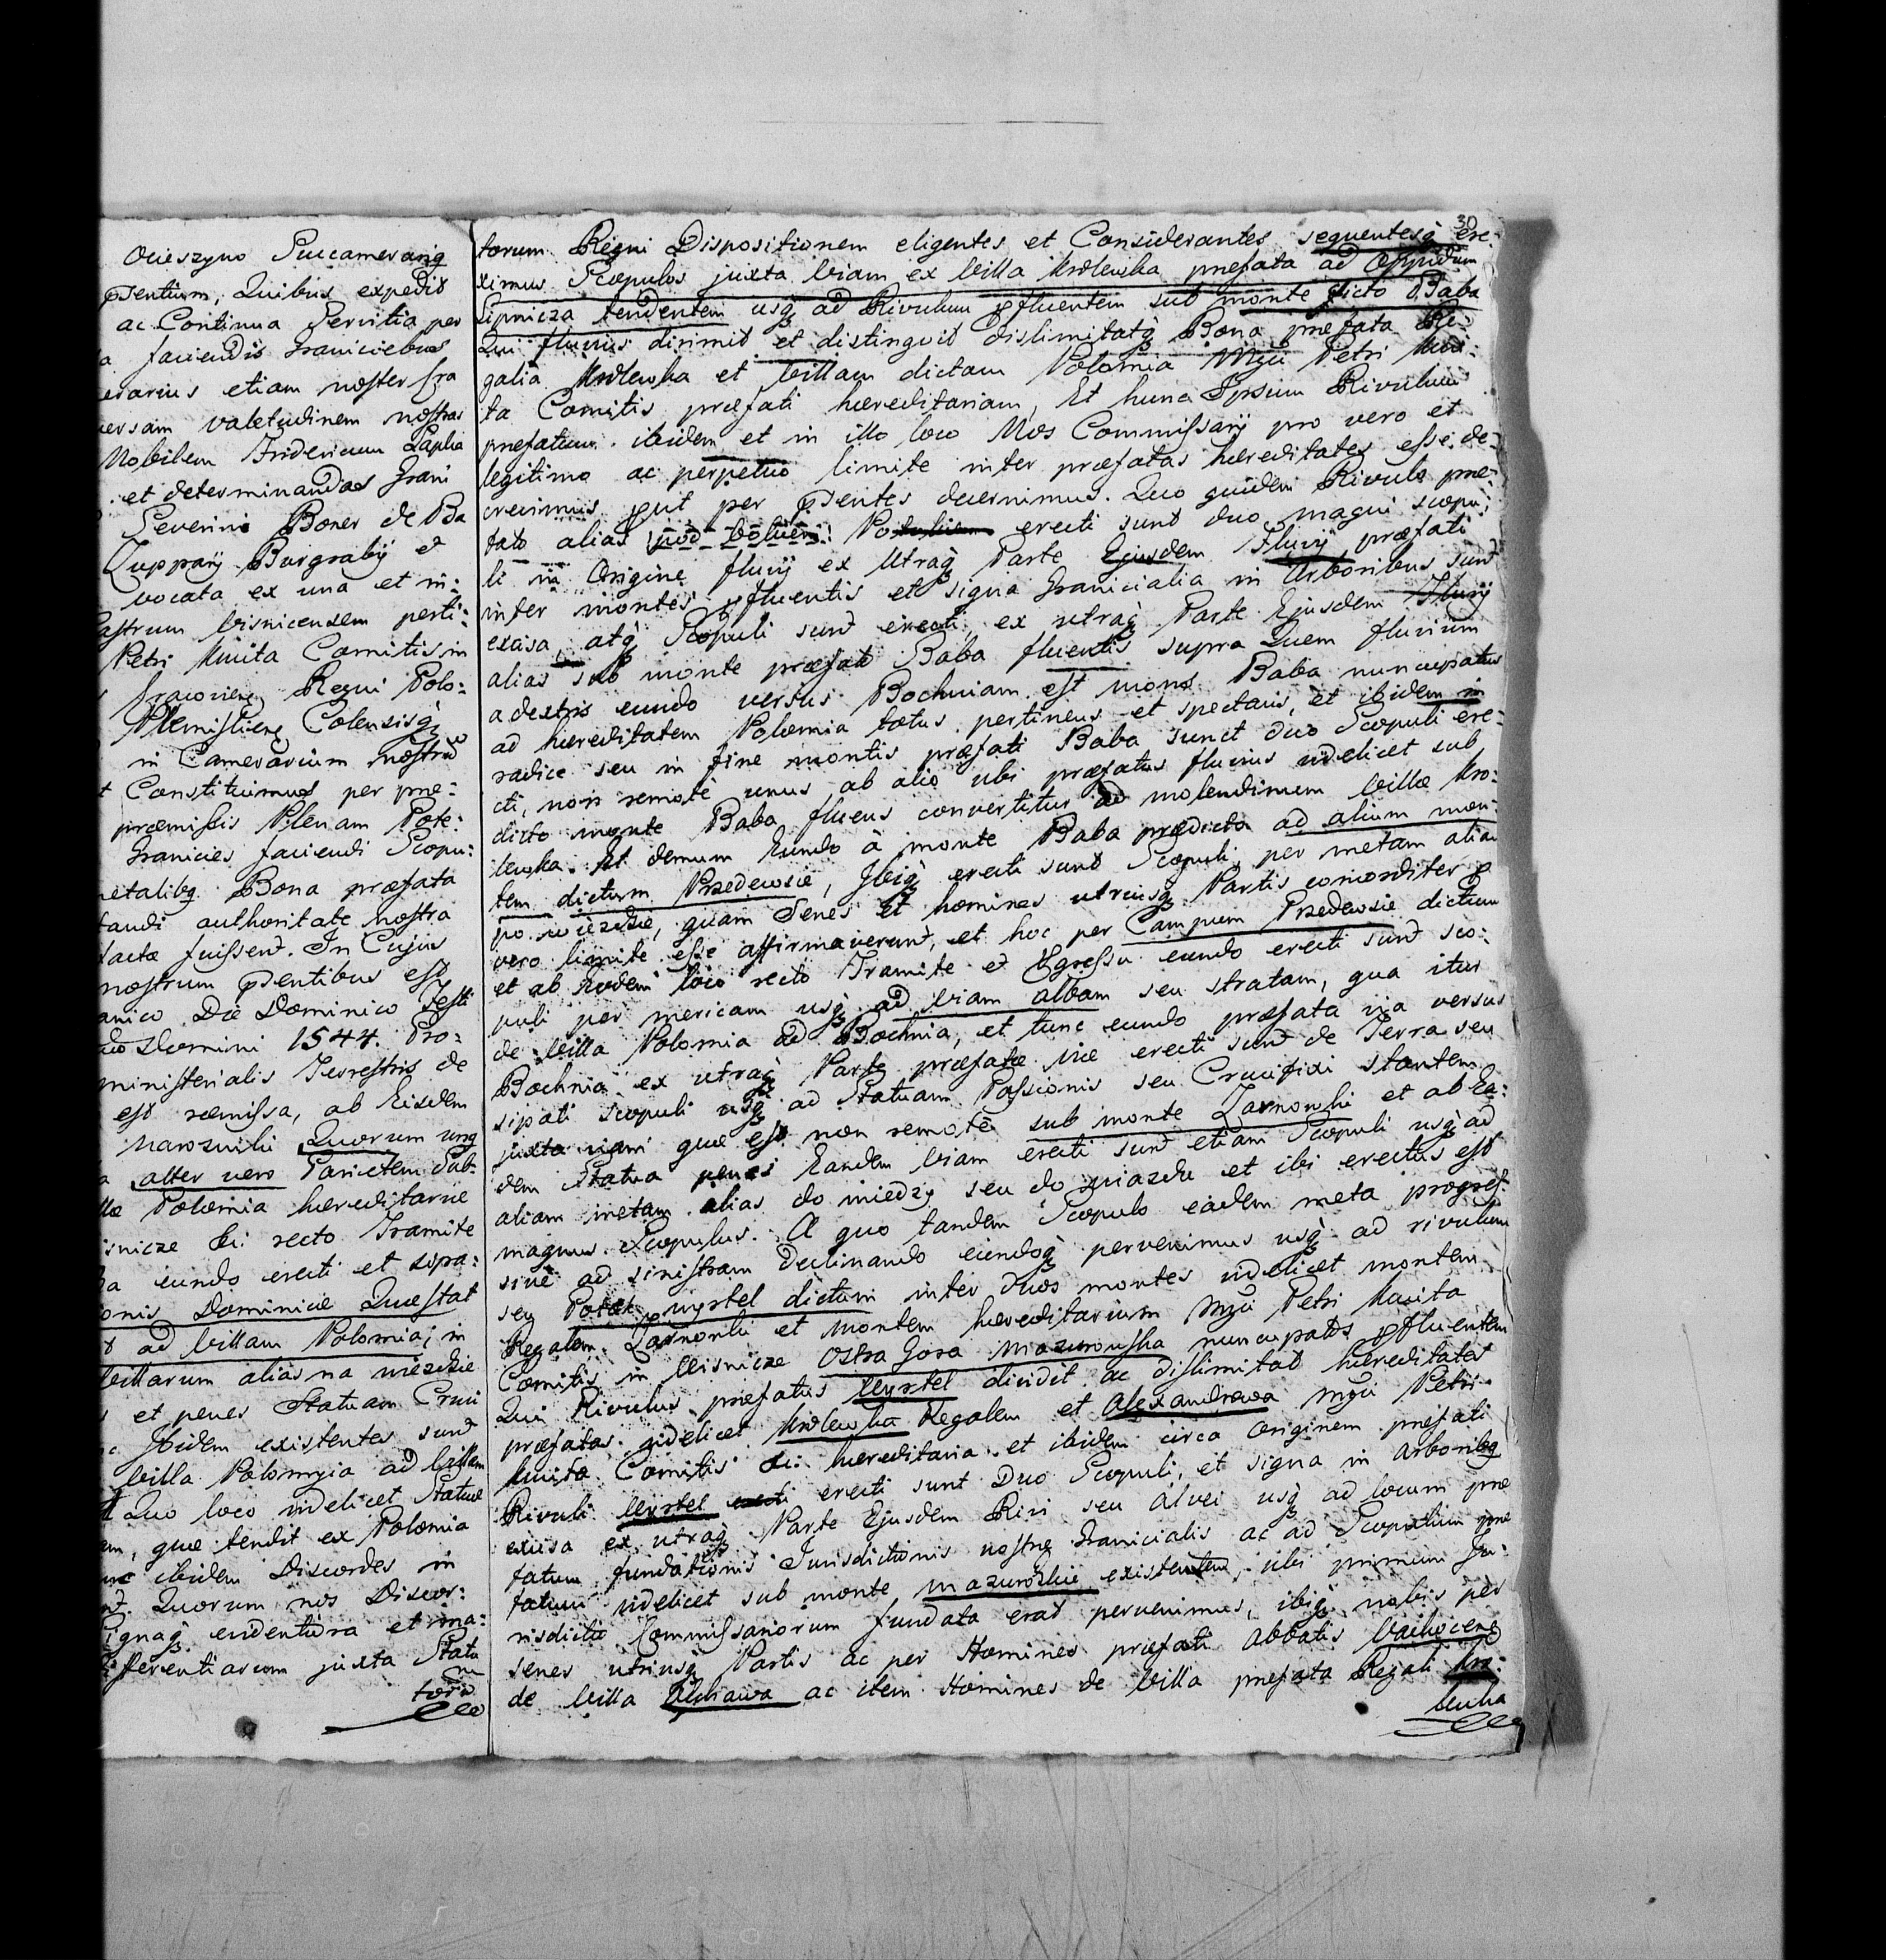 Ocieszyno Succamerariq
psentium, Quibus expedit
ac Continua Servitia per
a faciendis Graniciebus
erarius etiam noster Gra
versam valetudinem nostras
Nobilem Fridericum Laplia
et determinandas Grani
Severini Boner de Ba
Zuppary Burgraby et
vocata ex una et in:
Castrum Visnicensem perti:
Petri Kmita Comitis in
Cracovieng Regni Polo:
Plemisliens Colensisq
in Camerarium nostrũ
t Constituimus per prae:
praemissis Plenam Pote:
Granicies faciendi Scopu:
metalibq Bona praefata
tandi authoritate nostra
facta fuissent. In Cujus
nostrum psentibus est
anico Die Dominico Festi
Domini 1544. Pro:
ministerialis Terrestris de
est remissa, ab Eisdem
Narozniki Quorum unq
a alter vero Parietem Sub:
lla Polomia haereditariae
isnicze &c: recto Tramite
a eundo erecti et sipa:
onis Dominicae Quae stat
t ad villam Polomia; in
villarum alias na wiezdzie
s et penes Statuam Cruci
Ibidem existentes sunt
villa Polomyia ad Villam
Quo loco videlicet Statuae
em, quae tendit ex Polomia
ibidem Discordes in
nt. Quorum nos Discor:
Signaq evidentiora et ma:
fferentiarum juxta Statu
toru
30
torum Regni Dispositionem eligentes et Considerantes sequentesq ere:
ximus Scopulos juxta viam ex villa Krolewska praefata ad oppidum
Lipnicza tendentem usq ad Rivulum pfluentem sub monte dicto Baba
Qui fluvius dirimit et distinguit dislimitatq Bona praefata Re:
galia Krolewska et villam dictam Polomia Mgci Petri Kmi:
ta Comitis praefati haereditariam, Et hunc Ipsum Rivulum
praefatum ibidem et in illo loco Nos Commissarij pro vero et
legitimo ac perpetuo limite inter praefatas haereditates esse de:
crevimus put per psentes decernimus. Quo quidem Rivulo prae:
fato alias erecti sunt duo magni scopu:
li in Origine fluvij ex Utraq Parte Ejusdem Fluvij praefati
inter montes pfluentis et signa Granicialia in Arboribus sunt
excisa, atq Scopuli sunt erecti ex utraq Parte Ejusdem Fluvij
alias sub monte praefato Baba fluentis supra Quem fluvium
a dextris eundo versus Bochniam est mons Baba nuncupatus
ad haereditatem Polomia totus pertinens et spectans, et ibidem in
radice seu in fine montis praefati Baba sunt duo Scopuli ere:
cti, non remote unus ab alio ubi praefatus fluvius videlicet sub
dicto monte Baba fluens convertitur ad molendinum villae Kro:
lewska. Et demum Eundo à monte Baba praedicto ad alium mon:
tem dictum Przedewsie, Ibiq erecti sunt Scopuli, per metam alias
po wiezdzie, quam Senes Et homines utriusq Partis concorditer p
vero limite esse affirmaverunt, et hoc per Campum Przedewsie dictum
et ab Eodem loco recto Tramite et Egressu eundo erecti sunt sco:
puli per mericam usq ad viam albam seu stratam, qua itur
de villa Polomia ad Bochnia, et tunc eundo praefata via versus
Bochnia ex utraq Parte praefatae viae erecti sunt de Terra seu
sipati scopuli usq ad Statuam Passionis seu Crucifixi stantem
juxta viam quae est non remote sub monte Zarnowki et ab Ea:
dem Statua penes Eandem viam erecti sunt etiam Scopuli usq ad
aliam metam alias do miedzy seu do gwiazdu et ibi erectus est
magnus Scopulus. A quo tandem Scopulo eadem meta progres:
sive ad sinistram Declinando eundoq pervenimus usq ad rivulum
seu Potok wystel dictum inter duos montes videlicet montem
Regalem Zarnonki et montem haereditarium Mgci Petri Kmita
Comitis in Visnicze Ostra Gora Mazurowska nuncupatos pfluentem
Qui Rivulus praefatus Wystel dividit ac dislimitat haereditates
praefatas videlicet Krolewska Regalem et Alexandrowa Mgci Petri
Kmita Comitis &c: haereditaria et ibidem circa originem praefati
Rivuli Wystel erecti sunt Duo Scopuli, et signa in arboribq
excisa ex utraq Parte Ejusdem Rivi seu alvei usq ad locum prae
fatum fundationis Jurisdictionis nostrae Granicialis ac ad Scopulum prae
fatum videlicet sub monte Mazurowskie existentem, ubi primum Ju:
risdictio Commissariorum fundata erat pervenimus, ibiq nobis per
senes utriusq Partis ac per Homines praefati abbatis Vachocens
de villa Olchawa ac item Homines de villa praefata Regali Kro:
lewska